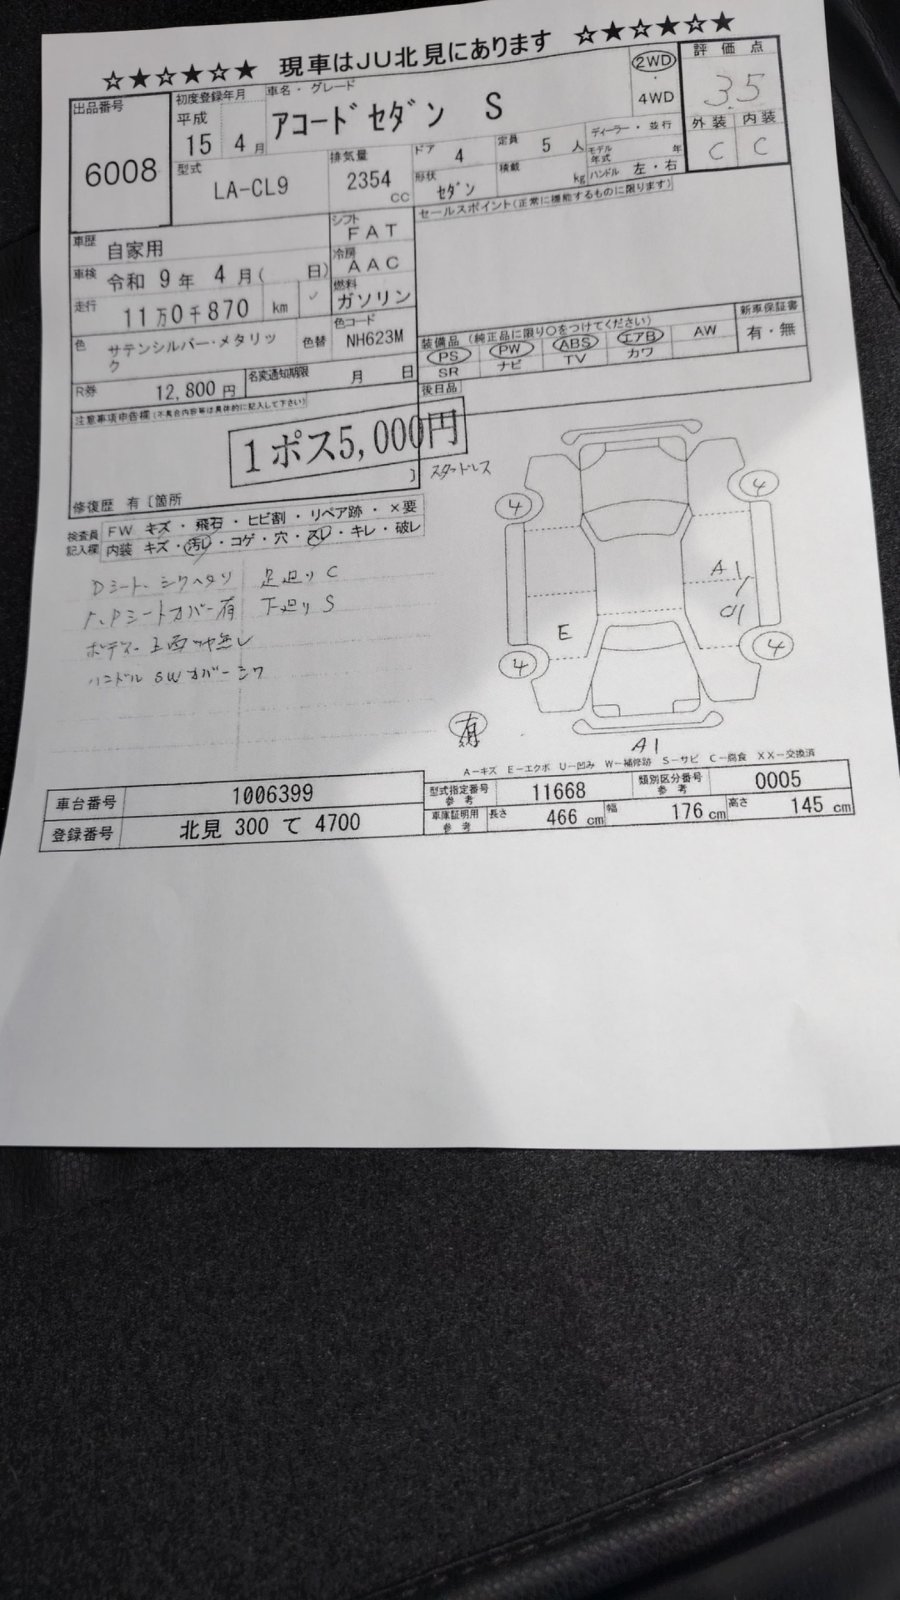 ☆★☆★☆★ 現車はJU北見にあります ☆★☆★☆★
出品番号
6008
初度登録年月
平成
15 4 月
車名・グレード
アコードセダン S
2WD
・
4WD
評価点
3.5
外装 内装
C C
型式
LA-CL9
排気量
2354
CC
ドア 4
形状 セダン
定員 5 人
積載 kg
ディーラー・並行
モデル年式 年
ハンドル 左・右
車歴 自家用
シフト
FAT
セールスポイント(正常に機能するものに限ります)
車検 令和 9 年 4 月( 日)
冷房
AAC
走行 11万0千870 km ✓
燃料
ガソリン
色 サテンシルバー・メタリック
色替
色コード
NH623M
装備品 (純正品に限り○をつけてください)
PS PW ABS エアB AW
SR ナビ TV カワ
新車保証書
有・無
R券 12,800 円
名変通知期限 月 日
後日品
注意事項申告欄(不具合内容等は具体的に記入して下さい)
1ポス5,000円
修復歴 有〔箇所 〕
スタッドレス
検査員記入欄
FW キズ・飛石・ヒビ割・リペア跡・×要
内装 キズ・汚レ・コゲ・穴・スレ・キレ・破レ
Dシート、シワヘタリ 足廻り C
Pシートカバー有 下廻り S
ボディー上面ツヤ無し
ハンドルSWカバーシワ
4 4
A1
01
E
4 4
有
A1
A－キズ E－エクボ U－凹み W－補修跡 S－サビ C－腐食 XX－交換済
車台番号 1006399
型式指定番号参考 11668
類別区分番号参考 0005
登録番号 北見 300 て 4700
車庫証明用参考 長さ 466 cm 幅 176 cm 高さ 145 cm